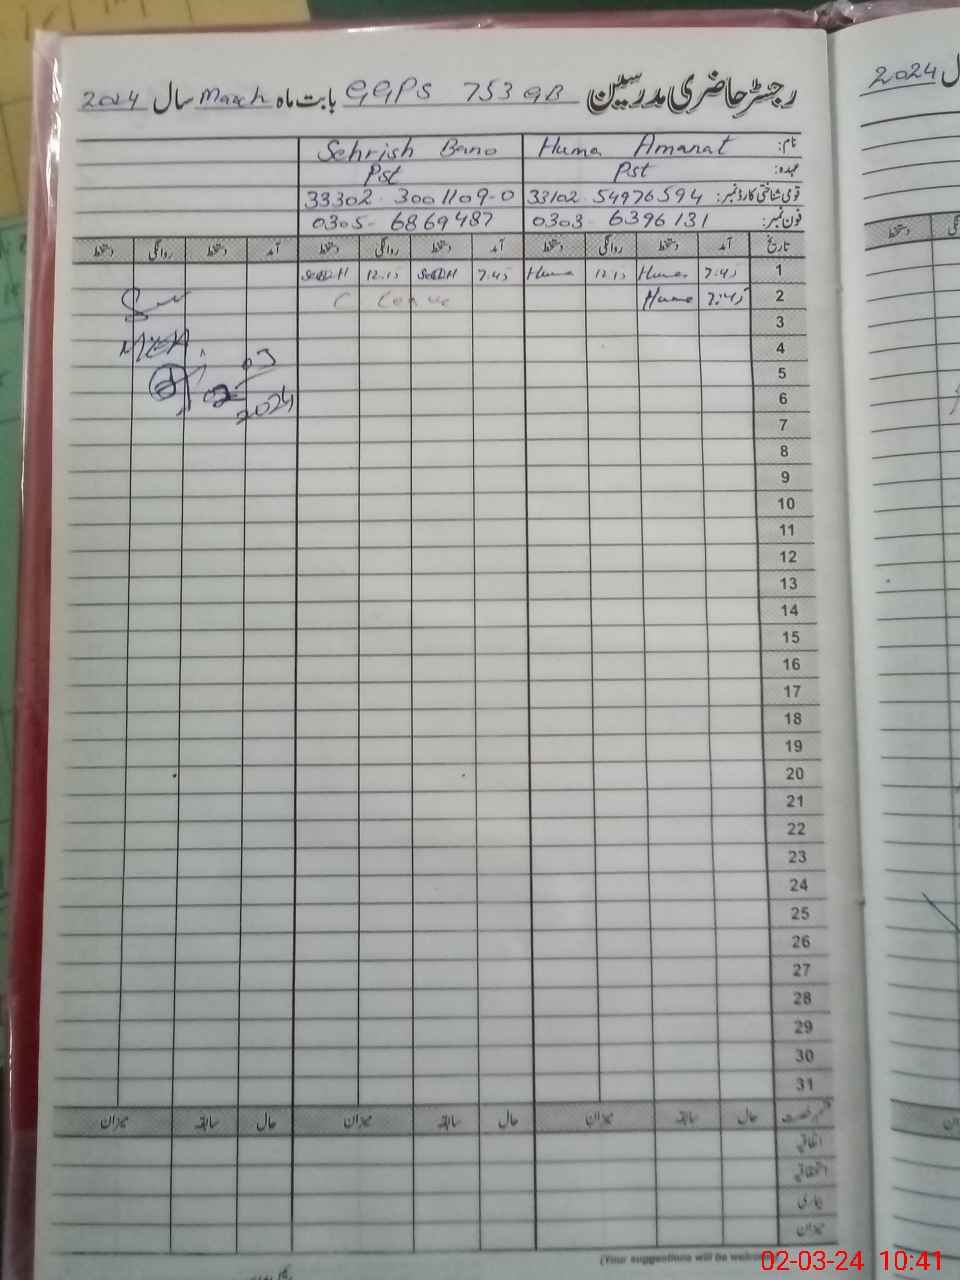 رجسٹر حاضری مدرسین GGPS 753 GB بابت ماہ March سال 2024
نام: Huma Amanat Sehrish Bano
عہدہ: Pst Pst
قومی شناختی کارڈ نمبر: 33102-54976594 33302-3001109-0
فون نمبر: 0303-6396131 0305-6869487
تاریخ آمد دستخط روانگی دستخط آمد دستخط روانگی دستخط آمد دستخط روانگی دستخط
1 7:45 Huma 12.15 Huma 7:45 12.15
2 7:45 Huma C Leave
3
4
5
6
7
8
9
10
11
12
13
14
15
16
17
18
19
20
21
22
23
24
25
26
27
28
29
30
31
02-03-2024
قسم رخصت حال سابقہ میزان حال سابقہ میزان حال سابقہ میزان
اتفاقیہ
استحقاقیہ
بیماری
میزان
(Your suggestions will be welcome
2024
دستخط
02-03-24 10:41